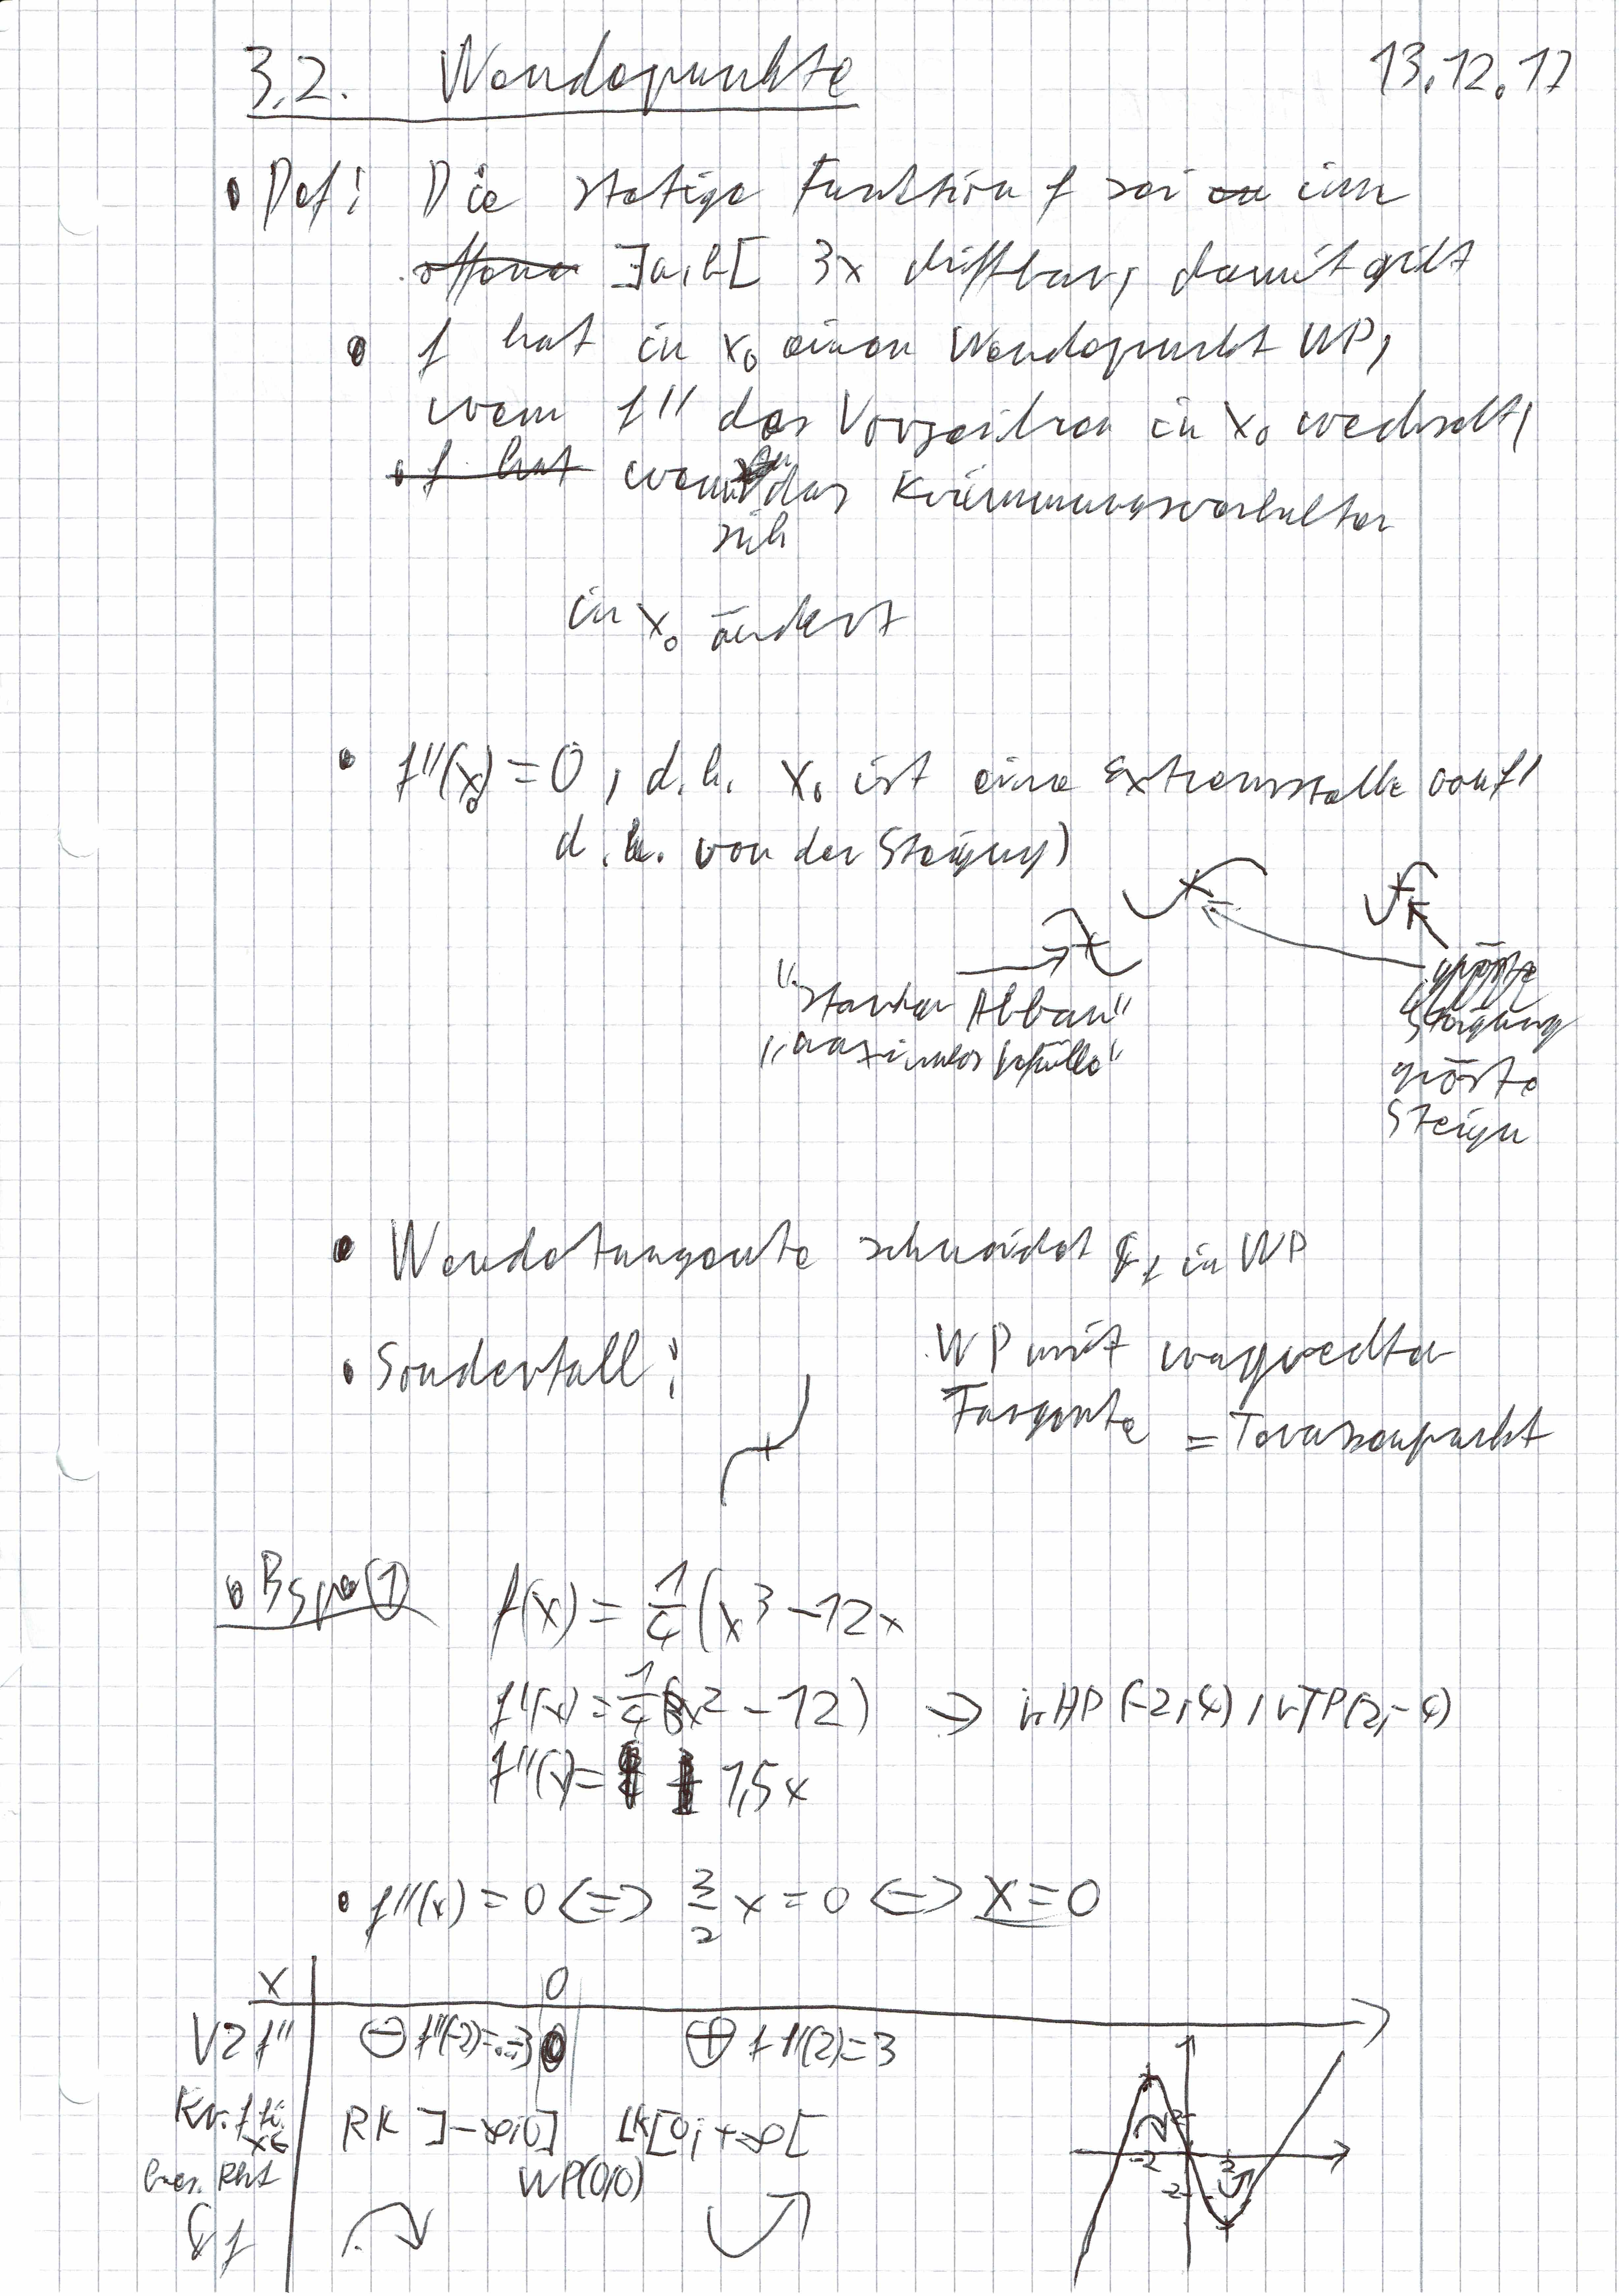 3.2. Wendepunkte 13.12.17
• Def: Die stetige Funktion f sei im
]a;b[ 3x diffbar, damit gilt
• f hat in x₀ einen Wendepunkt WP,
wenn f'' das Vorzeichen in x₀ wechselt,
wenn das Krümmungsverhalten
sich
in x₀ ändert
• f''(x₀) = 0, d.h. x₀ ist eine Extremstelle von f'
d.h. von der Steigung)
"starker Abbau"
"maximales Gefälle"
größte
Steigung
größte
Steigu
• Wendetangente schneidet G_f in WP
• Sonderfall: WP mit waagrechter
Tangente = Terassenpunkt
• Bsp. ①
f(x) = 1/4 (x³ - 12x
f'(x) = 1/4 (3x² - 12) → r.HP (-2;4) / r.TP(2;-4)
f''(x) = 1,5x
• f''(x) = 0 <=> 3/2 x = 0 <=> x = 0
x 0
VZ f'' ⊖ f''(-2) = -3 0 ⊕ f''(2) = 3
Kr. f für x∈ RK ]-∞;0] LK [0;+∞[
bes. Pkt WP(0;0)
G f
2
-2 2
-2